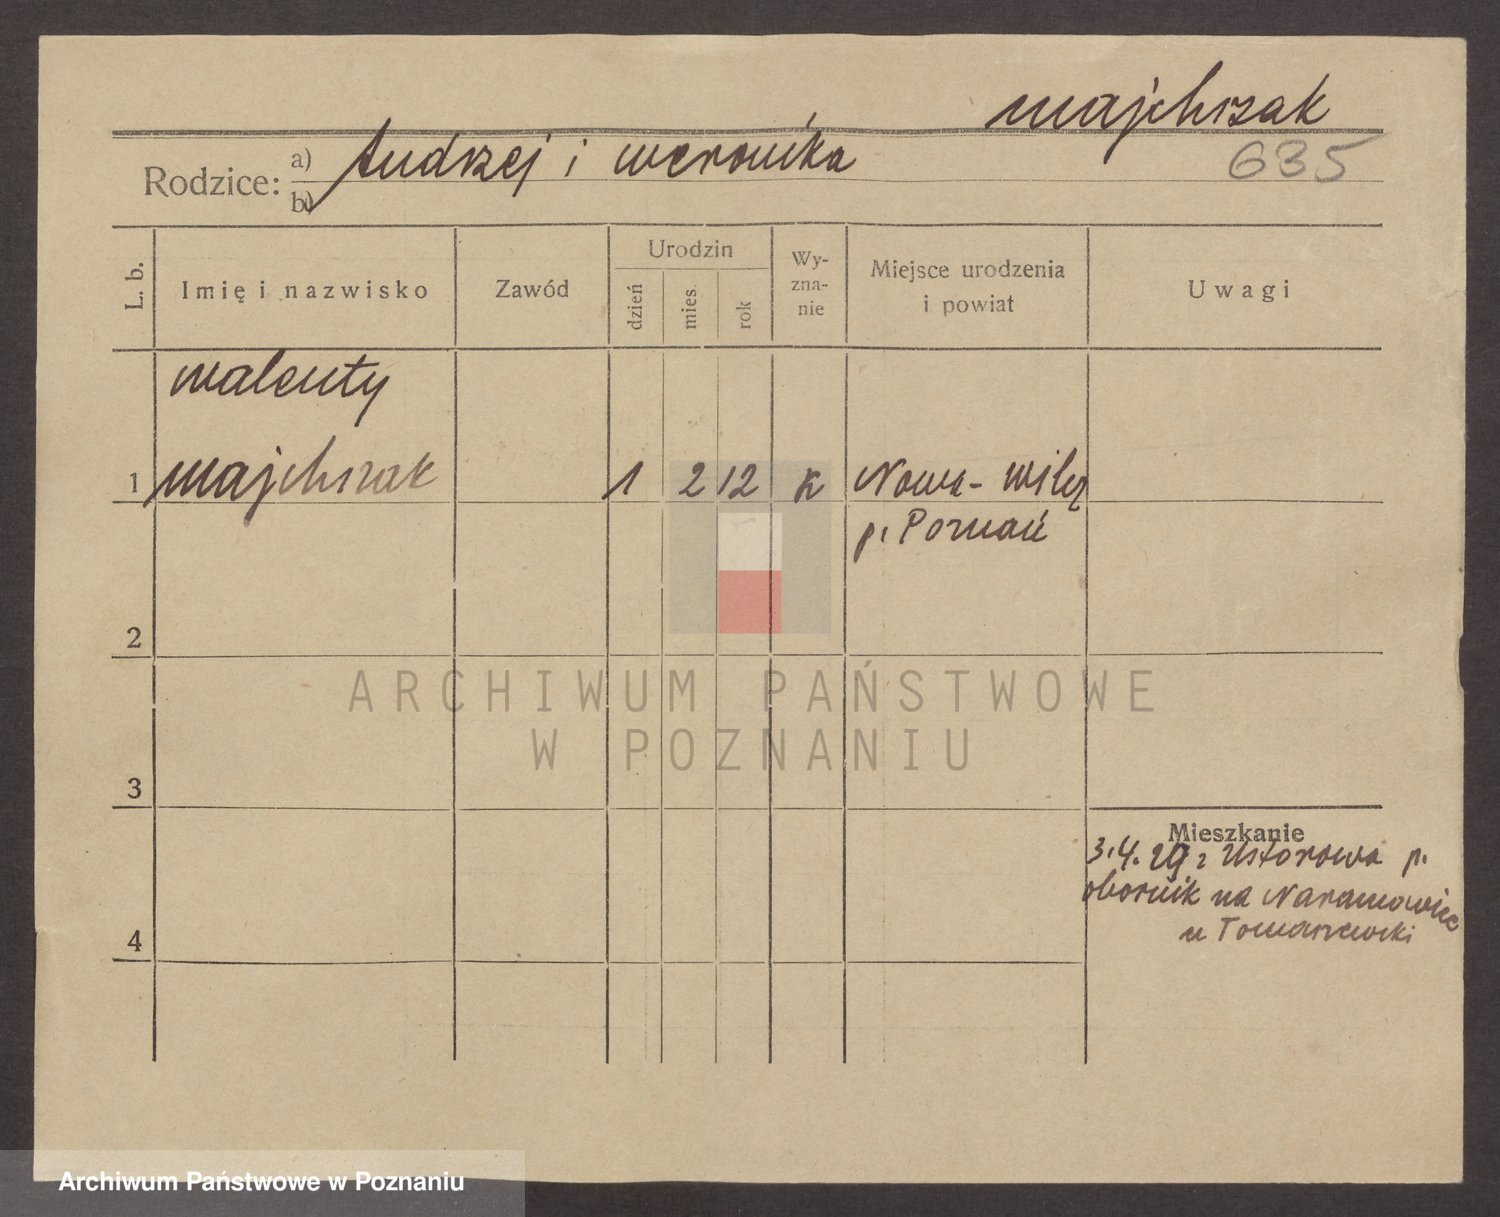 majchrzak
635
Rodzice: a) Andrzej i weronika
b)
L. b.
Imię i nazwisko
Zawód
Urodzin
dzień
mies.
rok
Wy-
zna-
nie
Miejsce urodzenia
i powiat
Uwagi
walenty
1 majchrzak 1 2 12 k Nowa-
p. Poznań
2
ARCHIWUM PAŃSTWOWE
W POZNANIU
3
Mieszkanie
3.4.29 z Ustorowa p.
obornik na Naramowice
u Tomaszewski
4
Archiwum Państwowe w Poznaniu